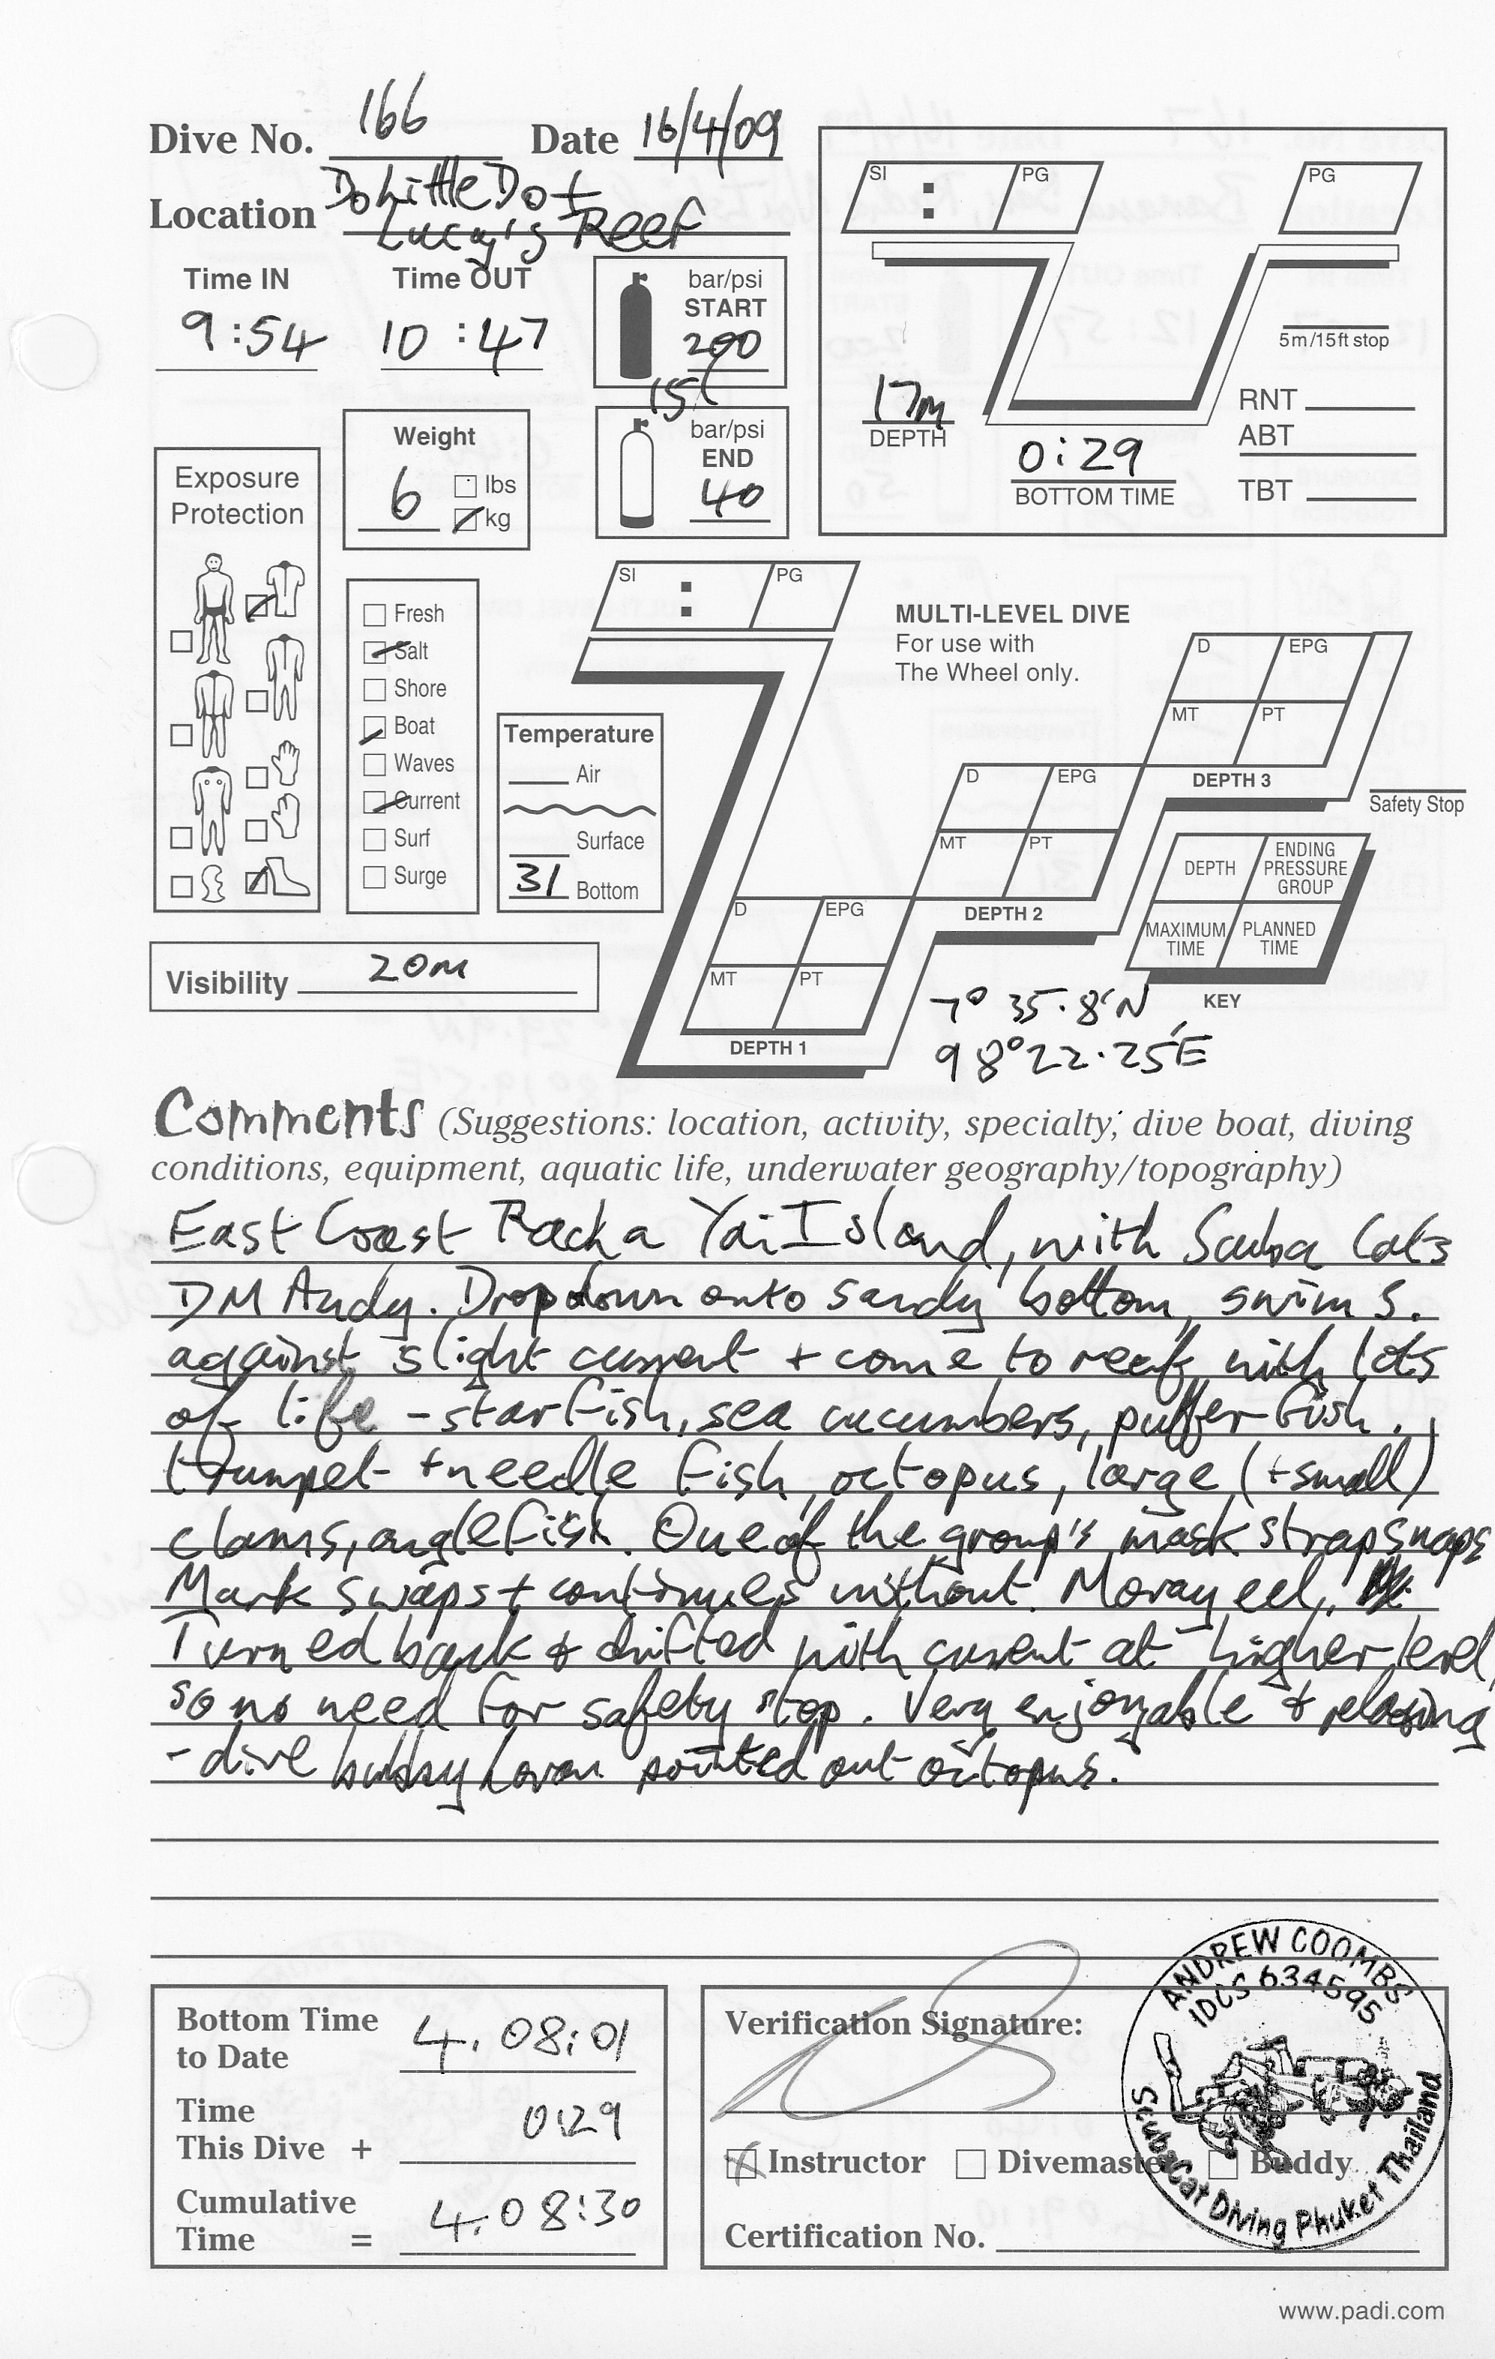 Dive No. 166 Date 16/4/09
Location DoLittleDot
Lucy's Reef
Time IN Time OUT
9:54 10:47
bar/psi
START
200
15
bar/psi
END
40
SI : PG
PG
5m/15ft stop
17m
DEPTH
0:29
BOTTOM TIME
RNT
ABT
TBT
Weight
6 lbs
kg
Exposure
Protection
Fresh
Salt
Shore
Boat
Waves
Current
Surf
Surge
Temperature
Air
Surface
31 Bottom
Visibility 20m
SI : PG
MULTI-LEVEL DIVE
For use with
The Wheel only.
D EPG
MT PT
DEPTH 1
D EPG
MT PT
DEPTH 2
D EPG
MT PT
DEPTH 3
Safety Stop
DEPTH ENDING PRESSURE GROUP
MAXIMUM TIME PLANNED TIME
KEY
7° 35.8'N
98°22.25'E
Comments (Suggestions: location, activity, specialty, dive boat, diving
conditions, equipment, aquatic life, underwater geography/topography)
East Coast Racha Yai Island, with Scuba Cats
DM Andy. Drop down onto sandy bottom, swim S.
against slight current + come to reef with lots
of life - starfish, sea cucumbers, puffer fish,
trumpet + needle fish, octopus, large (+small)
clams, anglefish. One of the group's mask strap snaps
Mark swaps + continues without. Moray eel.
Turned back & drifted with current at higher level,
so no need for safety stop. Very enjoyable & relaxing
- dive buddy pointed out octopus.
Bottom Time
to Date 4.08:01
Time
This Dive + 0:29
Cumulative
Time = 4.08:30
Verification Signature:
Instructor Divemaster Buddy
Certification No.
ANDREW COOMBS
IDCS 634595
Scuba Cat Diving Phuket Thailand
www.padi.com